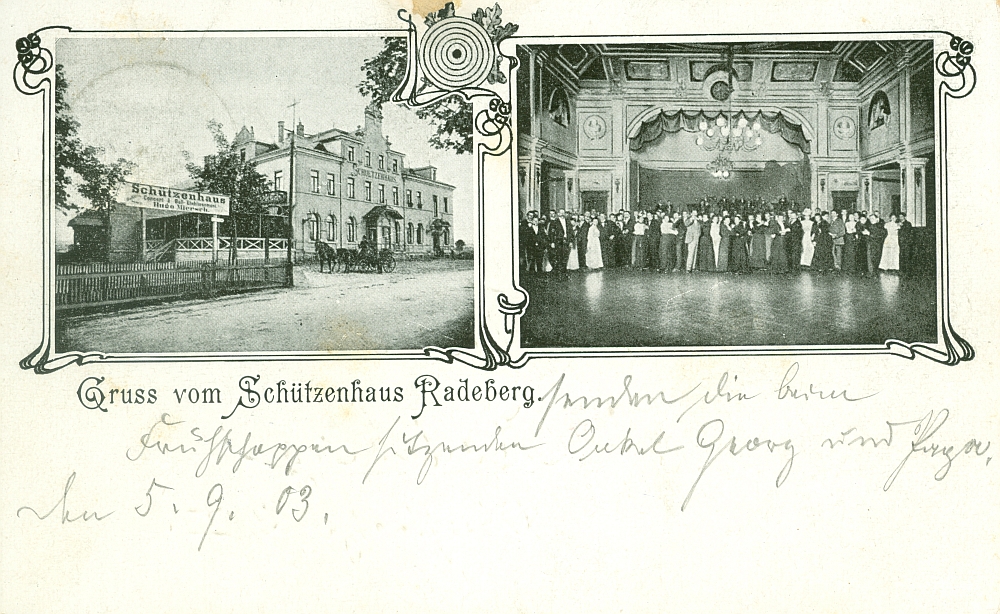 Schützenhaus
Concert & Ball-Etablissement
Hugo Miersch.
SCHÜTZENHAUS
Gruss vom Schützenhaus Radeberg. senden die beim
Frühschoppen sitzenden Onkel Georg und Papa.
den 5. 9. 03.